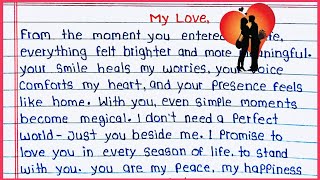 My Love,
From the moment you entered
everything felt brighter and more meaningful.
your smile heals my worries, your voice
comforts my heart, and your presence feels
like home. With you, even simple moments
become megical. I don't need a Perfect
world- Just you beside me. I Promise to
love you in every season of life. to stand
with you. you are my peace, my happiness